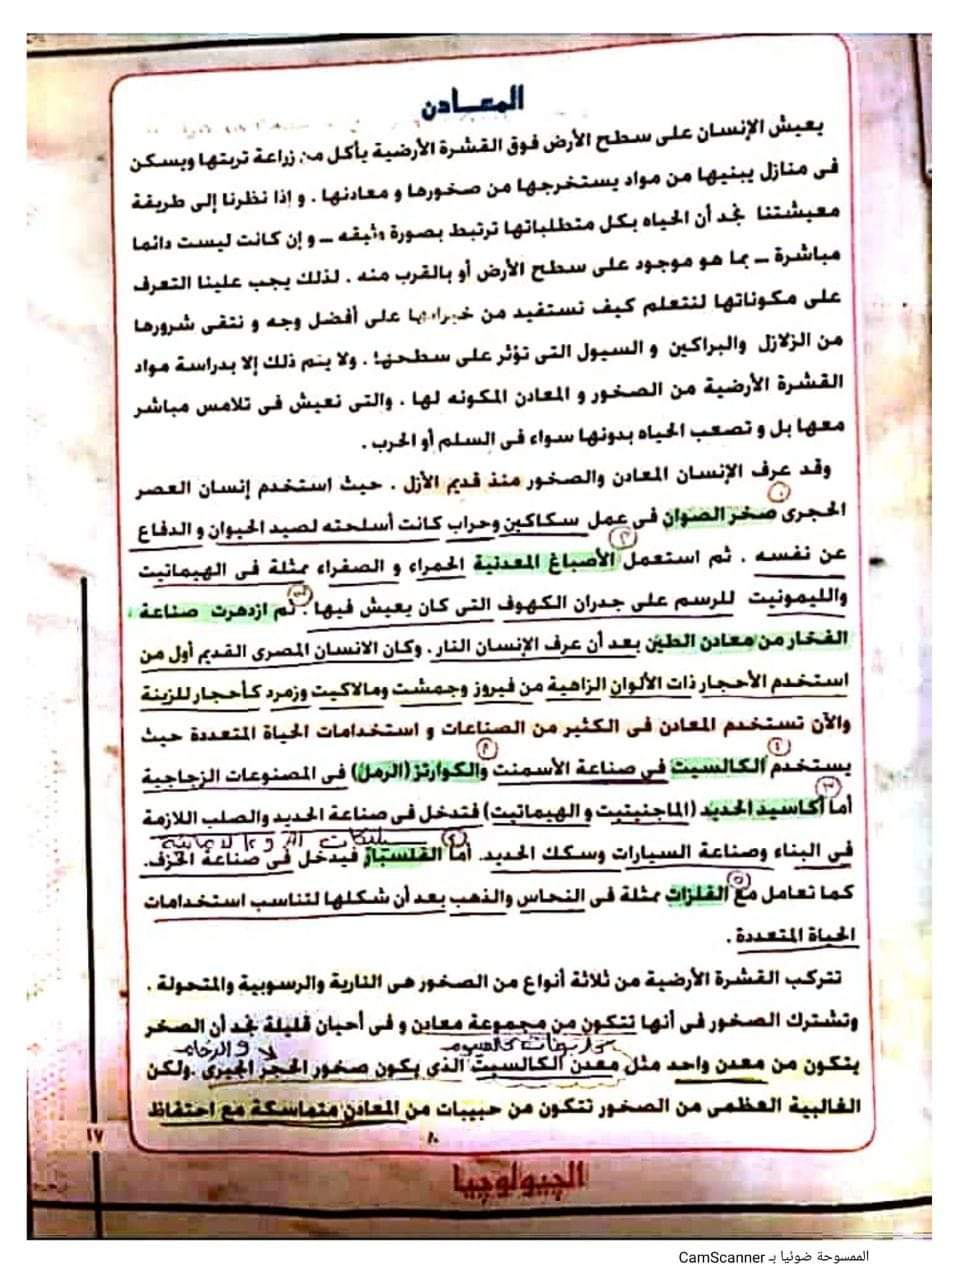 المعـــادن
يعيش الإنسان على سطح الأرض فوق القشرة الأرضية يأكل من زراعة تربتها ويسكن
فى منازل يبنيها من مواد يستخرجها من صخورها و معادنها . و إذا نظرنا إلى طريقة
معيشتنا نجد أن الحياه بكل متطلباتها ترتبط بصورة وثيقه ــ و إن كانت ليست دائما
مباشرة ــ بما هو موجود على سطح الأرض أو بالقرب منه . لذلك يجب علينا التعرف
على مكوناتها لنتعلم كيف نستفيد من خيراتها على أفضل وجه و نتقى شرورها
من الزلازل والبراكين و السيول التى تؤثر على سطحها . ولا يتم ذلك إلا بدراسة مواد
القشرة الأرضية من الصخور و المعادن المكونه لها . والتى نعيش فى تلامس مباشر
معها بل و تصعب الحياه بدونها سواء فى السلم أو الحرب .
وقد عرف الإنسان المعادن والصخور منذ قديم الأزل . حيث استخدم إنسان العصر
الحجرى صخر الصوان فى عمل سكاكين وحراب كانت أسلحته لصيد الحيوان و الدفاع
عن نفسه . ثم استعمل الأصباغ المعدنية الحمراء و الصفراء ممثلة فى الهيماتيت
والليمونيت للرسم على جدران الكهوف التى كان يعيش فيها . ثم ازدهرت صناعة
الفخار من معادن الطين بعد أن عرف الإنسان النار . وكان الانسان المصرى القديم أول من
استخدم الأحجار ذات الألوان الزاهية من فيروز وجمشت ومالاكيت وزمرد كأحجار للزينة
والآن تستخدم المعادن فى الكثير من الصناعات و استخدامات الحياة المتعددة حيث
يستخدم الكالسيت فى صناعة الأسمنت والكوارتز (الرمل) فى المصنوعات الزجاجية
أما أكاسيد الحديد (الماجنيتيت و الهيماتيت) فتدخل فى صناعة الحديد والصلب اللازمة
فى البناء وصناعة السيارات وسكك الحديد. أما الفلسبار فيدخل فى صناعة الخزف.
كما تعامل مع الفلزات ممثلة فى النحاس والذهب بعد أن شكلها لتناسب استخدامات
الحياة المتعددة .
تتركب القشرة الأرضية من ثلاثة أنواع من الصخور هى النارية والرسوبية والمتحولة .
وتشترك الصخور فى أنها تتكون من مجموعة معادن و فى أحيان قليلة نجد أن الصخر
كربونات كالسيوم
و الرخام
يتكون من معدن واحد مثل معدن الكالسيت الذى يكون صخور الحجر الجيرى .ولكن
الغالبية العظمى من الصخور تتكون من حبيبات من المعادن متماسكة مع احتفاظ
١٧
الجيولوجيا
الممسوحة ضوئيا بـ CamScanner